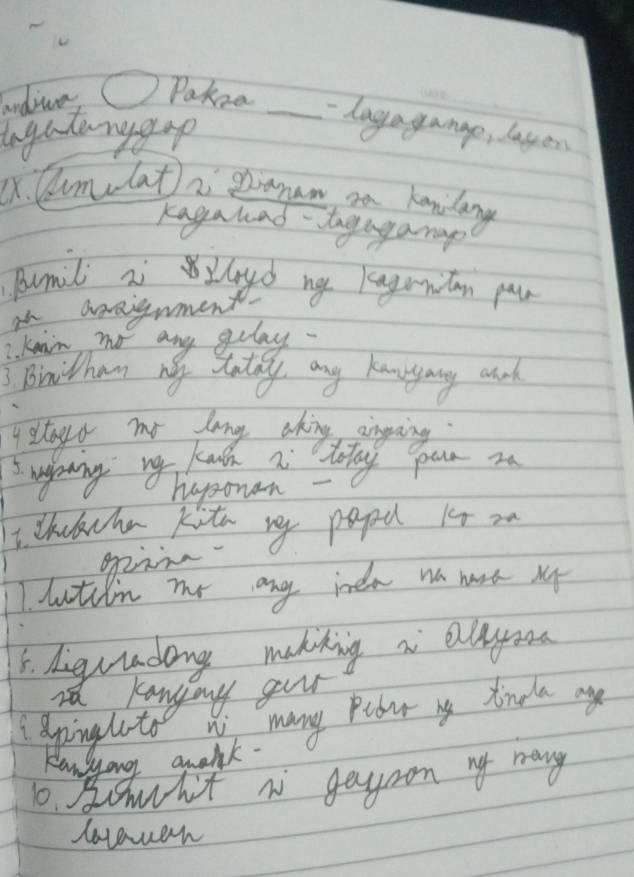 Pandiwa, Paksa ___ - tagaganap, layon
tagatanggap
EX. Sumulat si Dianam sa kanilang
kagawad - tagaganap
1. Bumili si Lloyd ng kagamitan para
sa assignment -
2. Kanin mo ang gulay -
3. Binilhan ng tatay ang kaniyang anak
-
4. Itago mo lang aking singsing -
5. nagsaing ng kanin si tatay para sa
haponan -
6. kita ng papel ko sa
opisina -
7. lutuin mo ang isda na nasa
.
8. Siguradong makikinig si Alayssa
sa kanyang guro -
9. Ipingluto ni mang Pedro ng tinola ang
kanyang anak -
10. Gumuhit si jayson ng isang
larawan